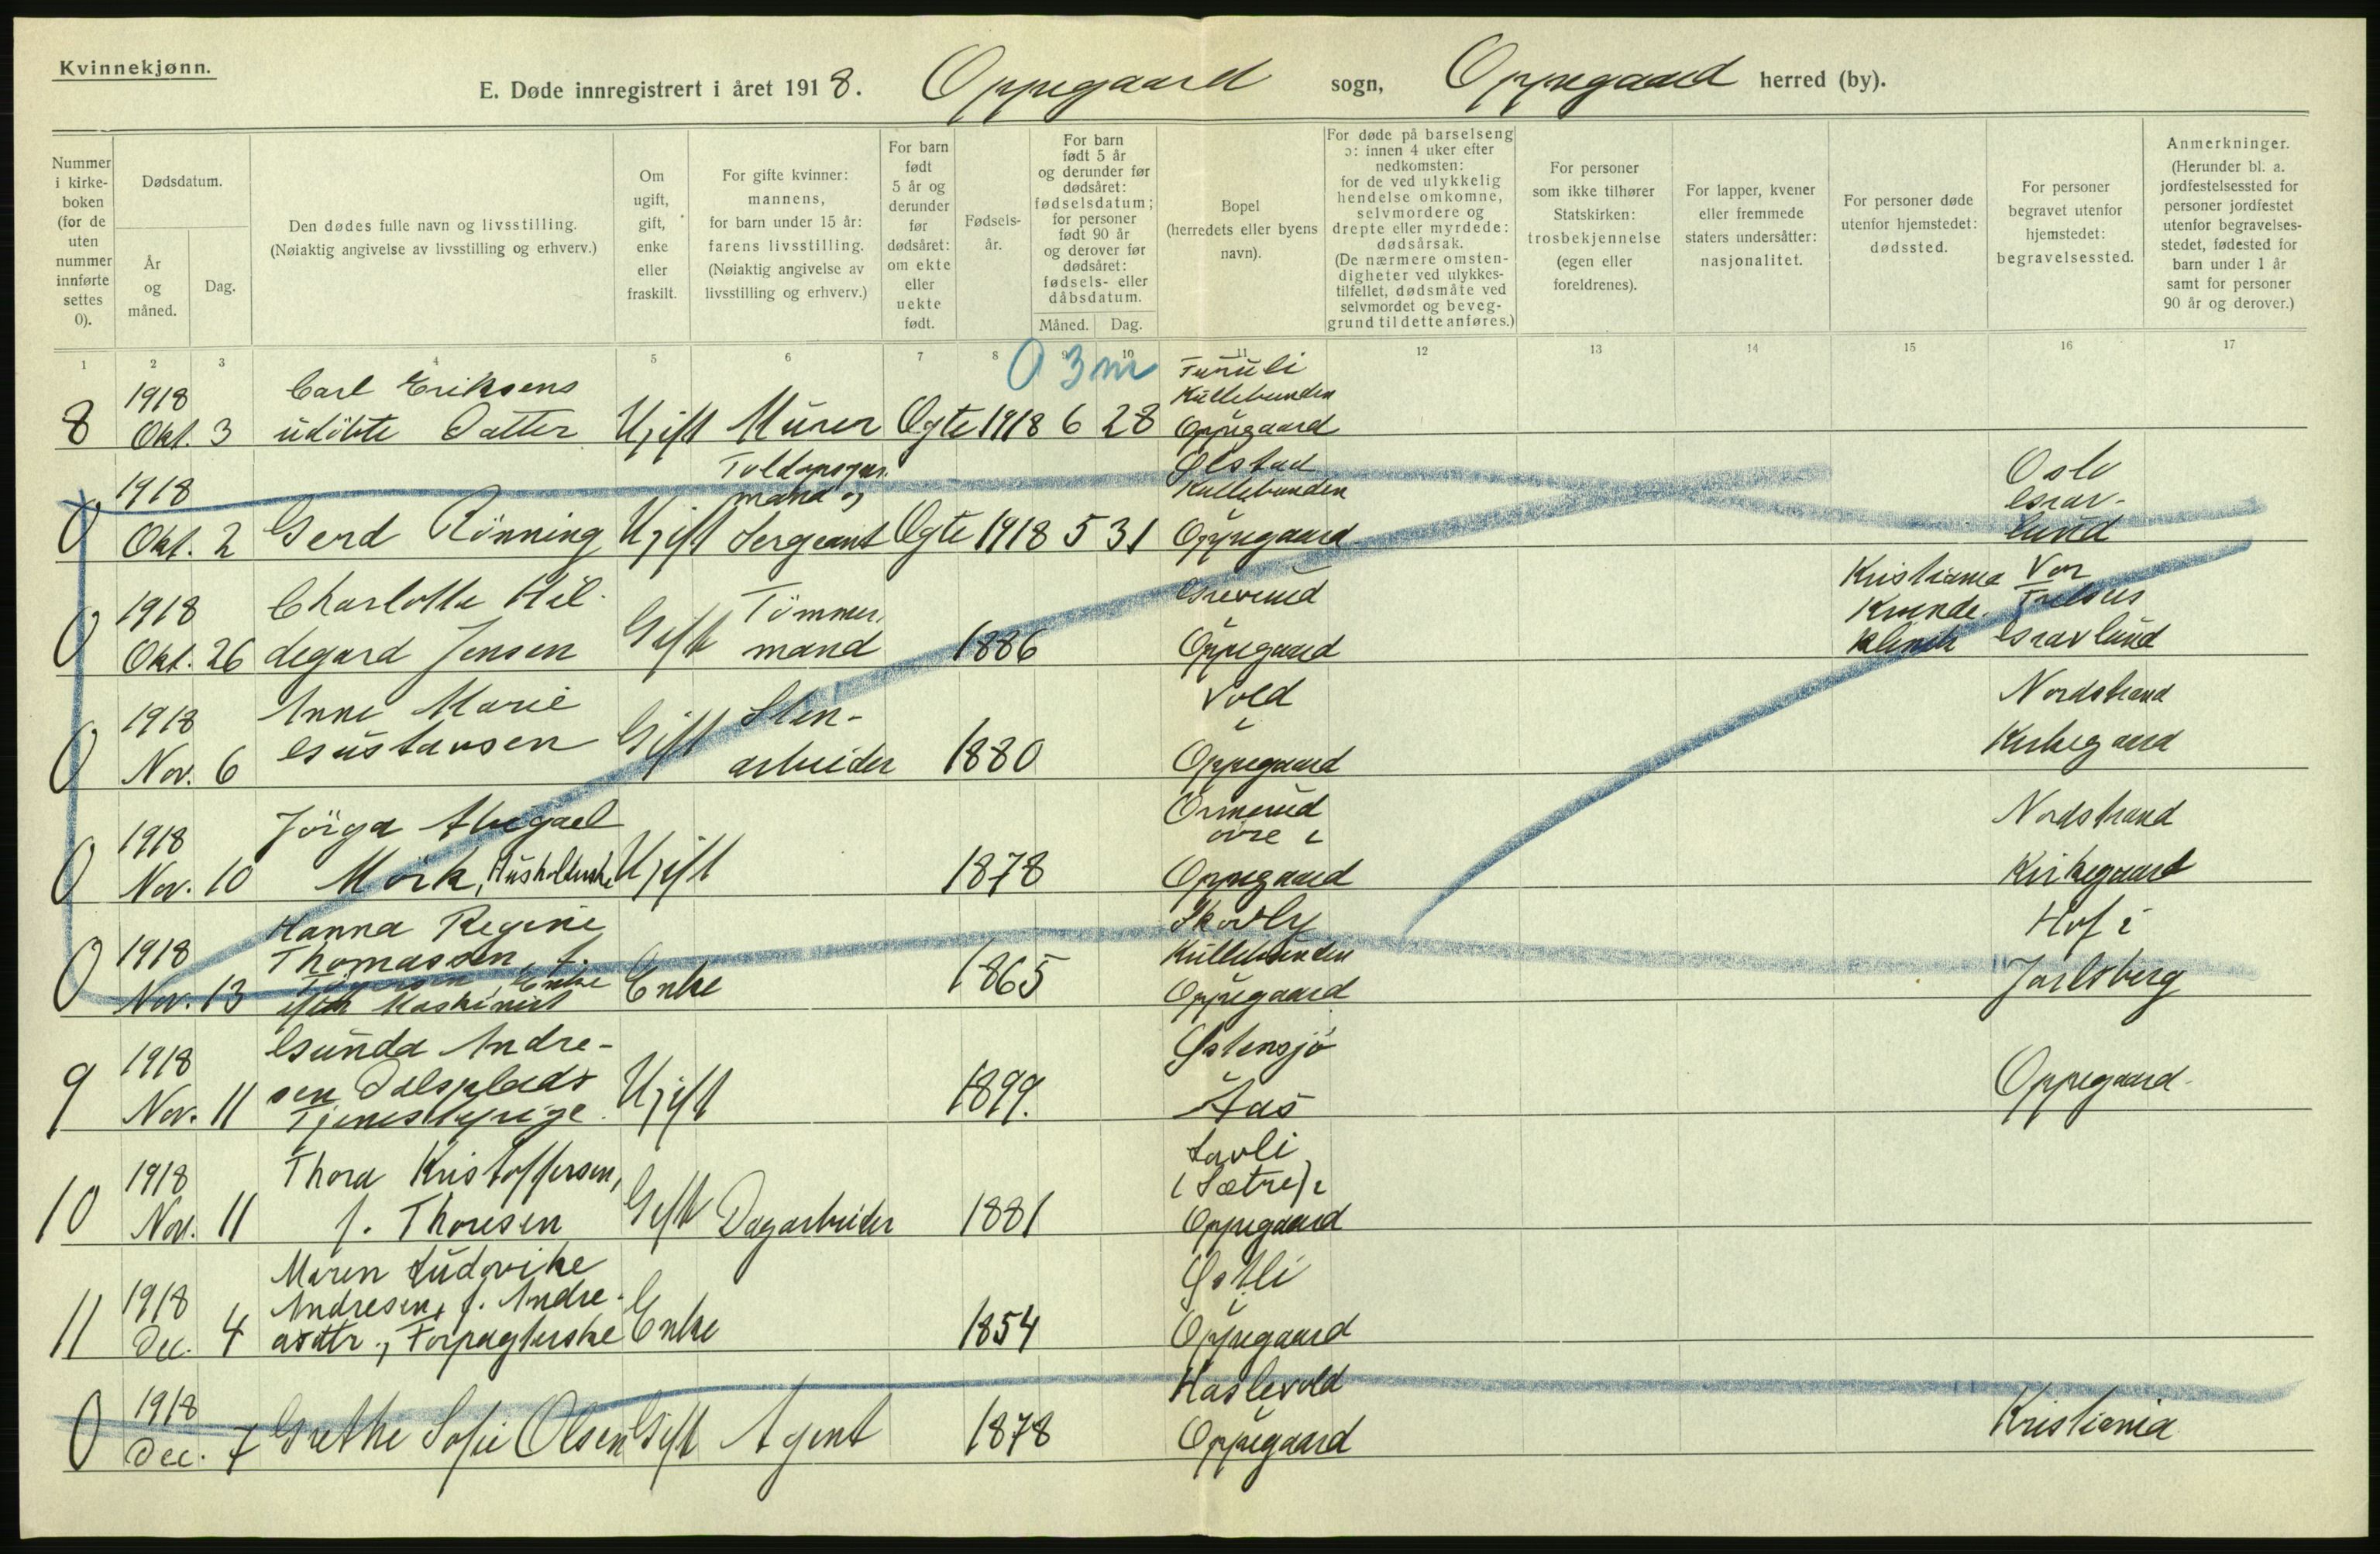 Kvinnekjønn.
E. Døde innregistrert i året 1918. Oppegaard sogn, Oppegaard herred (by).
Nummer i kirkeboken (for de uten nummer innførte settes 0).
Dødsdatum.
År og måned.
Dag.
Den dødes fulle navn og livsstilling.
(Nøiaktig angivelse av livsstilling og erhverv.)
Om ugift, gift, enke eller fraskilt.
For gifte kvinner: mannens, for barn under 15 år: farens livsstilling. (Nøiaktig angivelse av livsstilling og erhverv.)
For barn født 5 år og derunder før dødsåret: om ekte eller uekte født.
Fødselsår.
For barn født 5 år og derunder før dødsåret: fødselsdatum; for personer født 90 år og derover før dødsåret: fødsels- eller dåbsdatum.
Måned.
Dag.
Bopel (herredets eller byens navn).
For døde på barselseng ɔ: innen 4 uker efter nedkomsten: for de ved ulykkelig hendelse omkomne, selvmordere og drepte eller myrdede: dødsårsak. (De nærmere omstendigheter ved ulykkestilfellet, dødsmåte ved selvmordet og beveggrund til dette anføres.)
For personer som ikke tilhører Statskirken: trosbekjennelse (egen eller foreldrenes).
For lapper, kvener eller fremmede staters undersåtter: nasjonalitet.
For personer døde utenfor hjemstedet: dødssted.
For personer begravet utenfor hjemstedet: begravelsessted.
Anmerkninger. (Herunder bl. a. jordfestelsessted for personer jordfestet utenfor begravelsesstedet, fødested for barn under 1 år samt for personer 90 år og derover.)
1 2 3 4 5 6 7 8 9 10 11 12 13 14 15 16 17
0 3 m
8 1918 Okt. 3 Carl Eriksens udöbte Datter Ugift Murer Egte 1918 6 28 Furuli Kullebunden Oppegaard
0 1918 Okt. 2 Gerd Rönning Ugift mand og Sergeant Egte 1918 5 31 Ølstad Kullebunden Oppegaard Oslo Gravlund
0 1918 Okt. 26 Charlotte Hildegard Jensen Gift Tömmermand 1886 Greverud Oppegaard Kristiania Kvindeklinik Vor Frelsers Gravlund
0 1918 Nov. 6 Anne Marie Gustavsen Gift Stenarbeider 1880 Vold i Oppegaard Nordstrand Kirkegaard
0 1918 Nov. 10 Jörga Abigael Mörk, Husholderske Ugift 1878 Ormerud övre i Oppegaard Nordstrand Kirkegaard
0 1918 Nov. 13 Hanna Regine Thomassen f. Enke efter Maskinist Enke 1865 Skovly Kullebunden Oppegaard Hof i Jarlsberg
9 1918 Nov. 11 Gunda Andresen Dalsplads Tjenestepige Ugift 1899. Østensjö Aas Oppegaard
10 1918 Nov. 11 Thora Kristoffersen, f. Thoresen Gift Dagarbeider 1881 Lovli (Sætre) i Oppegaard
11 1918 Dec. 4 Maren Ludovike Andresen, f. Andreasdtr., Forpagterske Enke 1854 Østli i Oppegaard
0 1918 Dec. 7 Grethe Sofie Olsen Gift Agent 1878 Haslevold Oppegaard Kristiania